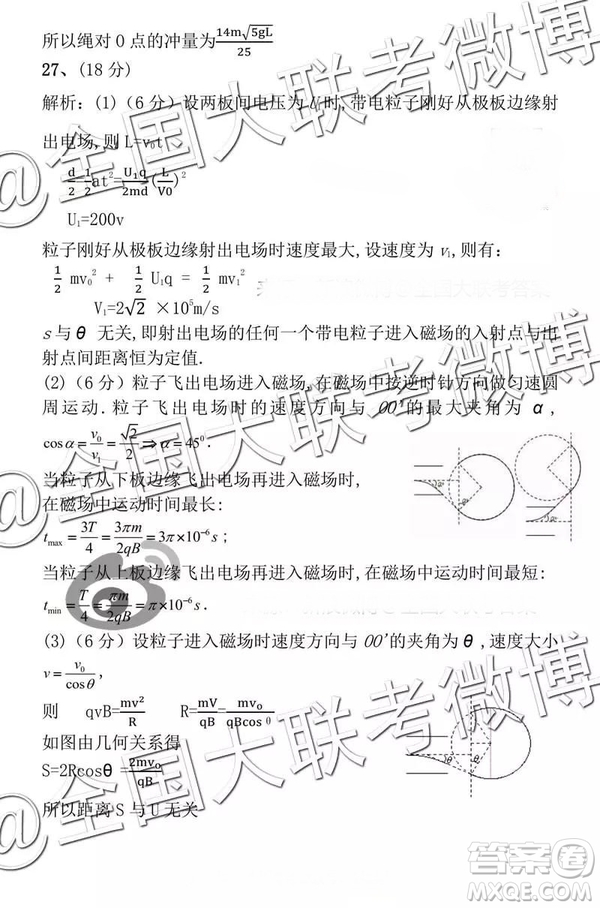 所以绳对 O 点的冲量为14m√5gL/25
27、(18 分)
解析:(1)(6 分)设两板间电压为 U₁时,带电粒子刚好从极板边缘射
出电场,则 L=v₀t
d/2=1/2at²=U₁q/2md(L/V0)²
U₁=200v
粒子刚好从极板边缘射出电场时速度最大,设速度为 v₁,则有:
1/2 mv₀² + 1/2 U₁q = 1/2 mv₁²
V₁=2√2 ×10⁵m/s
s 与 θ 无关,即射出电场的任何一个带电粒子进入磁场的入射点与出
射点间距离恒为定值.
(2)(6 分)粒子飞出电场进入磁场,在磁场中按逆时针方向做匀速圆
周运动.粒子飞出电场时的速度方向与 OO'的最大夹角为 α,
cosα=v₀/v₁=√2/2⇒α=45⁰.
当粒子从下板边缘飞出电场再进入磁场时,
在磁场中运动时间最长:
t max=3T/4=3πm/2qB=3π×10⁻⁶s;
当粒子从上板边缘飞出电场再进入磁场时,在磁场中运动时间最短:
t min=T/4=πm/2qB=π×10⁻⁶s.
(3)(6 分)设粒子进入磁场时速度方向与 OO'的夹角为 θ,速度大小
v=v₀/cosθ,
则 qvB=mv²/R R=mV/qB=mv₀/qBcosθ
如图由几何关系得
S=2Rcosθ=2mv₀/qB
所以距离 S 与 U 无关
@全国大联考微博
@全国大联考微博
@全国大联考微博
答案圈
MXQE.COM